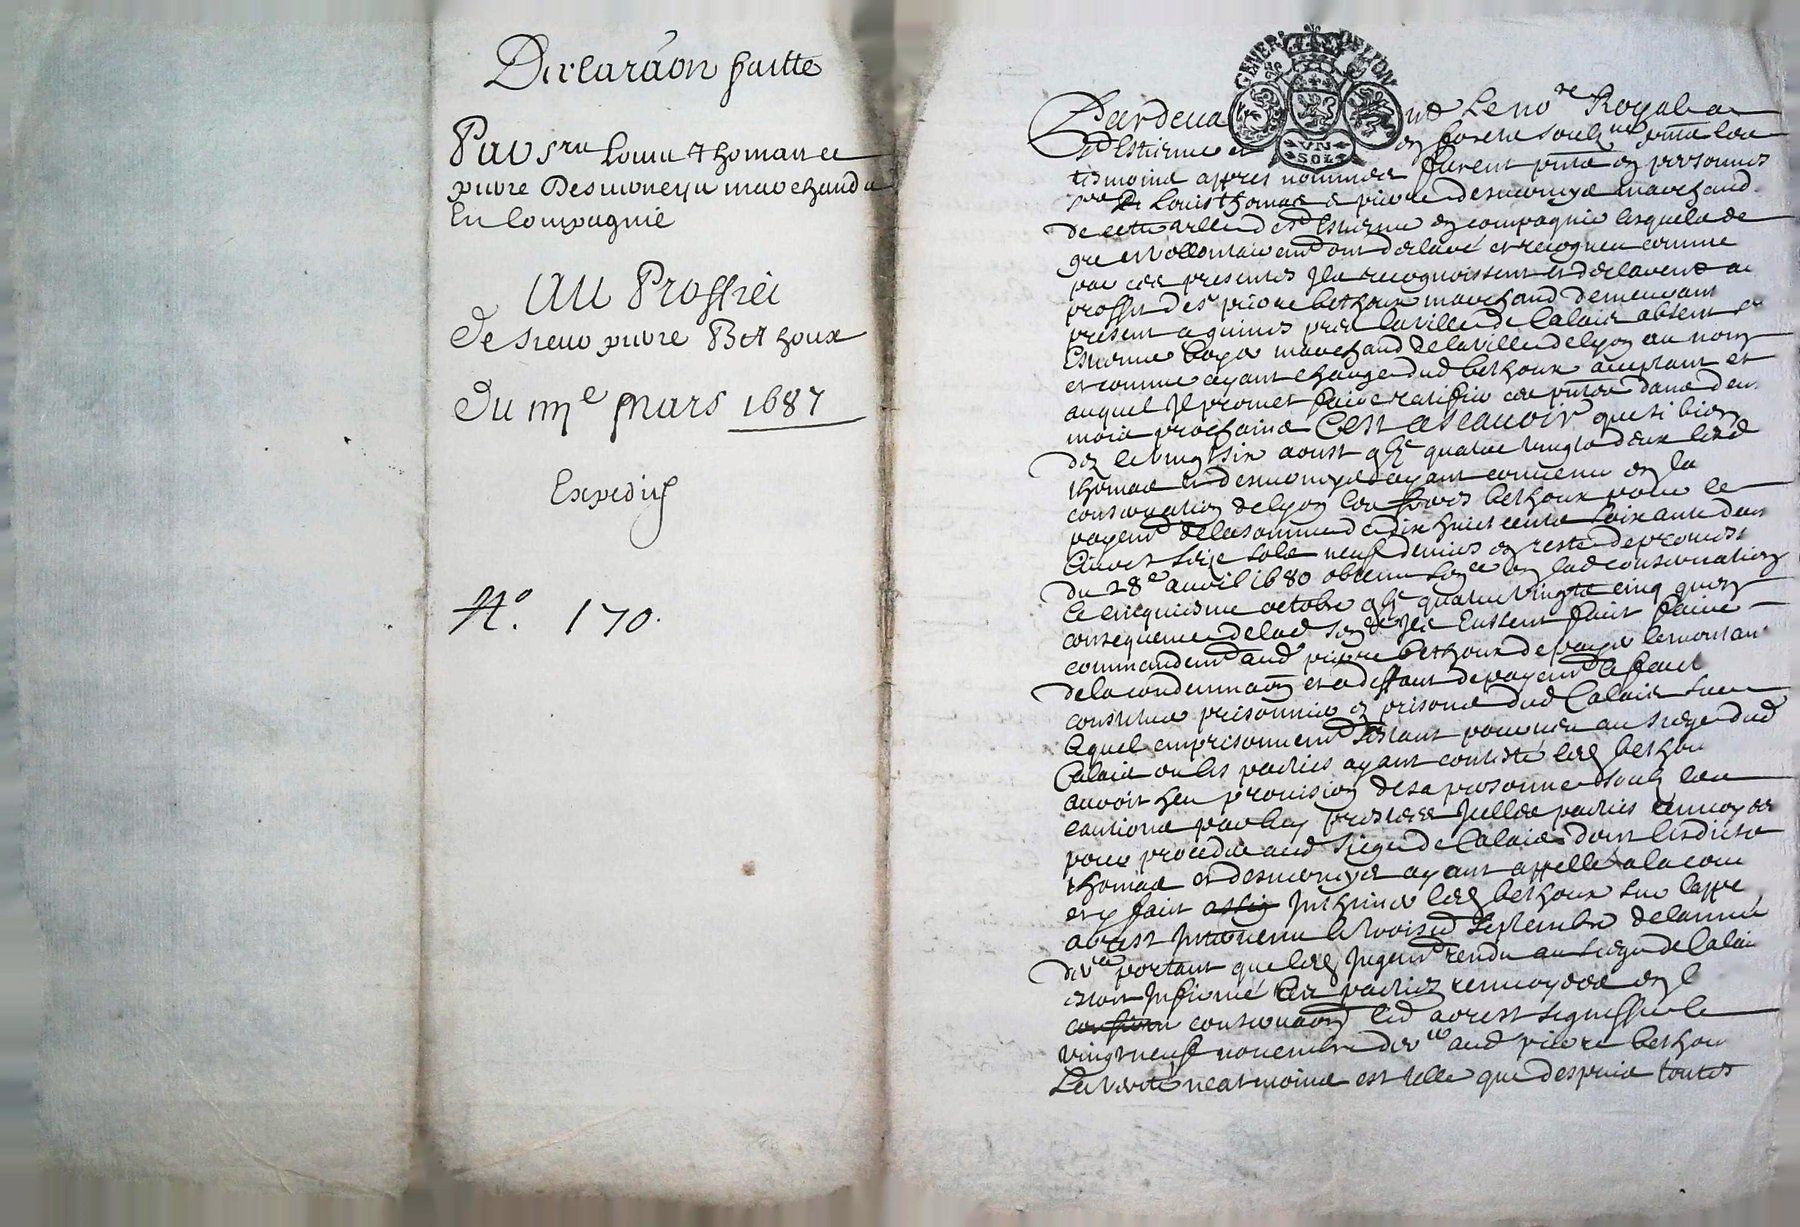 Declara͠on faitte
Par srs Louis Thomas et
pierre Desmoneys marchands
En Compagnie
AU Proffict
de sieur pierre Bethoux
Du iiie Mars 1687
Expedié
No. 170.
GENER DE LYON
VN
SOL
Pardeva le nore Royal a
St Estienne en forest soubzné
tesmoins appres nommes furent en personnes
Louis thomas e pierre desmoneys marchand
de cette ville de St Estienne en compagnie lesquels de
gre et vollontairemt ont declaré et recogneu comme
par ces presentes Ils recognoissent et declarent au
proffit de sr pierre bethoux marchand demeurant
present a guines pres la ville de Calais absent sr
Estienne marchand de la ville de lyon au nom
et comme ayant charge dud bethoux acceptant et
auquel Il promet faire ratiffie ces dans deux
mois prochains C'est a scavoir que si bien
le vingt six aoust quatre vingts deux lesd
thomas et desmoneys ayant convenu en la
conservation de lyon led bethoux pour le
payemt de la somme de dix huict cents soixante deux
livres seize sols neuf deniers en reste de promesse
du 28e avril 1680 obtenu en lad conservation
le cinquiesme octobre quatre vingts cinq qu'en
consequence de lad Ils eussent faict faire
commandemt aud pierre bethoux de payer le montant
de la condemna͠on et a deffaut de payemt le faict
constitue prisonnier en prisons dud Calais sur
lequel emprisonnemt au siege dud
Calais ou les parties ayant contesté led bethou
auroit heu provision de sa personne soubz les
cautions par luy parties renvoyees
pour proceder aud siege de Calais dont lesdicts
thomas et desmoneys ayant appellé a la cour
et y faict led bethoux sur l'appe
arrest Intervenu le septembre de lannee
portant que led jugemt rendu au siege de Calai
les parties renvoyees en l
conserva͠on led arrest signiffie le
vingt neuf novembre aud pierre bethou
La verité neantmoins est telle que despuis toutes